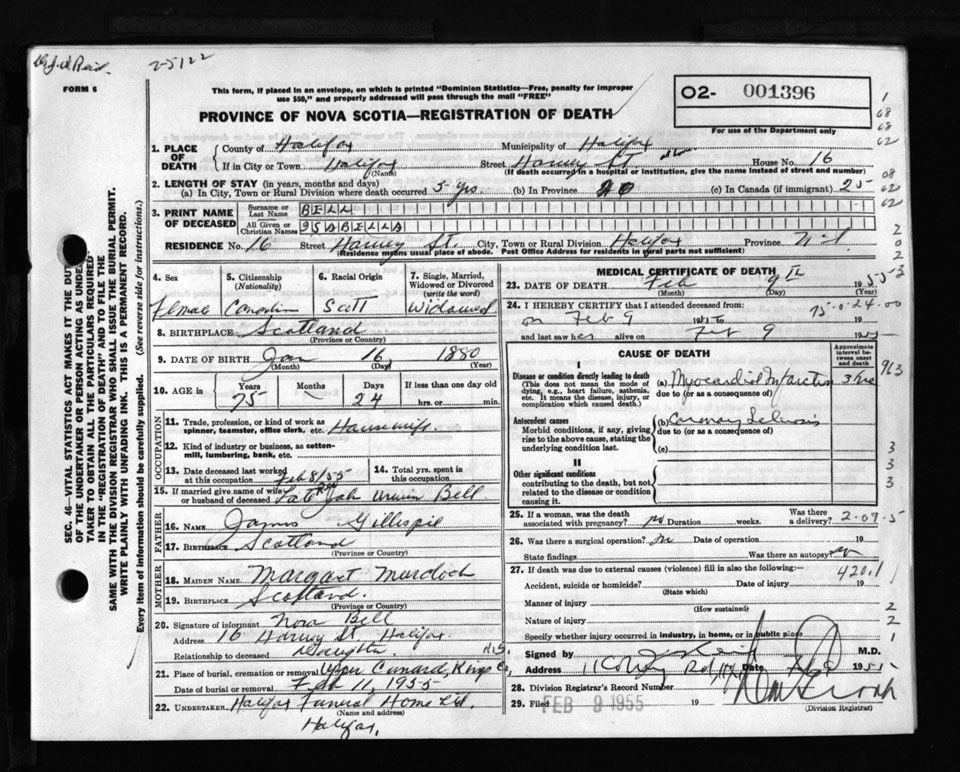 2-5122
FORM 6
This form, if placed in an envelope, on which is printed "Dominion Statistics—Free, penalty for improper
use $50," and properly addressed will pass through the mail "FREE"
PROVINCE OF NOVA SCOTIA—REGISTRATION OF DEATH
O2- 001396
For use of the Department only
SEC. 46—VITAL STATISTICS ACT MAKES IT THE DUTY
OF THE UNDERTAKER OR PERSON ACTING AS UNDER
TAKER TO OBTAIN ALL THE PARTICULARS REQUIRED
IN THE "REGISTRATION OF DEATH" AND TO FILE THE
SAME WITH THE DIVISION REGISTRAR WHO SHALL ISSUE THE BURIAL PERMIT.
WRITE PLAINLY WITH UNFADING INK. THIS IS A PERMANENT RECORD.
Every item of information should be carefully supplied. (See reverse side for instructions.)
1. PLACE OF DEATH County of Halifax Municipality of Halifax
If in City or Town Halifax (Name) Street Harvey St House No. 16
(If death occurred in a hospital or institution, give the name instead of street and number)
2. LENGTH OF STAY (in years, months and days)
(a) In City, Town or Rural Division where death occurred 5 yrs (b) In Province 20 (c) In Canada (if immigrant) 25
3. PRINT NAME OF DECEASED Surname or Last Name BELL
All Given or Christian Names ISABELLA
RESIDENCE No. 16 Street Harvey St. City, Town or Rural Division Halifax Province N.S.
(Residence means usual place of abode. Post Office Address for residents in rural parts not sufficient)
4. Sex Female
5. Citizenship (Nationality) Canadian
6. Racial Origin Scott
7. Single, Married, Widowed or Divorced (write the word) Widowed
8. BIRTHPLACE Scotland
(Province or Country)
9. DATE OF BIRTH Jan 16 1880
(Month) (Day) (Year)
10. AGE in Years 75 Months - Days 24 If less than one day old hrs. or min.
OCCUPATION
11. Trade, profession, or kind of work as
spinner, teamster, office clerk, etc. Housewife
12. Kind of industry or business, as cotton-
mill, lumbering, bank, etc.
13. Date deceased last worked
at this occupation Feb 8/55
14. Total yrs. spent in
this occupation
15. If married give name of wife
or husband of deceased Late Rev Irwin Bell
FATHER
16. NAME James Gillespie
17. BIRTHPLACE Scotland
(Province or Country)
MOTHER
18. MAIDEN NAME Margaret Murdoch
19. BIRTHPLACE Scotland.
(Province or Country)
20. Signature of informant Nora Bell
Address 16 Harvey St. Halifax N.S.
Relationship to deceased Daughter
21. Place of burial, cremation or removal Upper Canard, Kings Co,
Date of burial or removal Feb 11, 1955
22. UNDERTAKER Halifax Funeral Home Ltd.
(Name and address)
Halifax.
MEDICAL CERTIFICATE OF DEATH
23. DATE OF DEATH Feb 9 1955
(Month) (Day) (Year)
24. I HEREBY CERTIFY that I attended deceased from:
75-0-24-00
on Feb 9 1955 To 19
and last saw her alive on Feb 9 1955
CAUSE OF DEATH
Approximate
interval be-
tween onset
and death
I
Disease or condition directly leading to death
(This does not mean the mode of
dying, e.g., heart failure, asthenia,
etc. It means the disease, injury, or
complication which caused death.)
(a) Myocardial Infarction 3 hrs
due to (or as a consequence of)
Antecedent causes
Morbid conditions, if any, giving
rise to the above cause, stating the
underlying condition last.
(b) Coronary Sclerosis
due to (or as a consequence of)
(c)
II
Other significant conditions
contributing to the death, but not
related to the disease or condition
causing it.
25. If a woman, was the death
associated with pregnancy? no Duration weeks. Was there
a delivery? 2-09-5
26. Was there a surgical operation? no Date of operation 19
State findings Was there an autopsy? no
27. If death was due to external causes (violence) fill in also the following:—
420.1
Accident, suicide or homicide? Date of injury 19
(State which)
Manner of injury
(How sustained)
Nature of injury
Specify whether injury occurred in industry, in home, or in public place
Signed by M.D.
Address Date 1955
28. Division Registrar's Record Number
29. Filed FEB 9 1955 19
(Division Registrar)
1
68
68
62
08
62
62
2
0
2
3
963
3
3
3
2
2
1